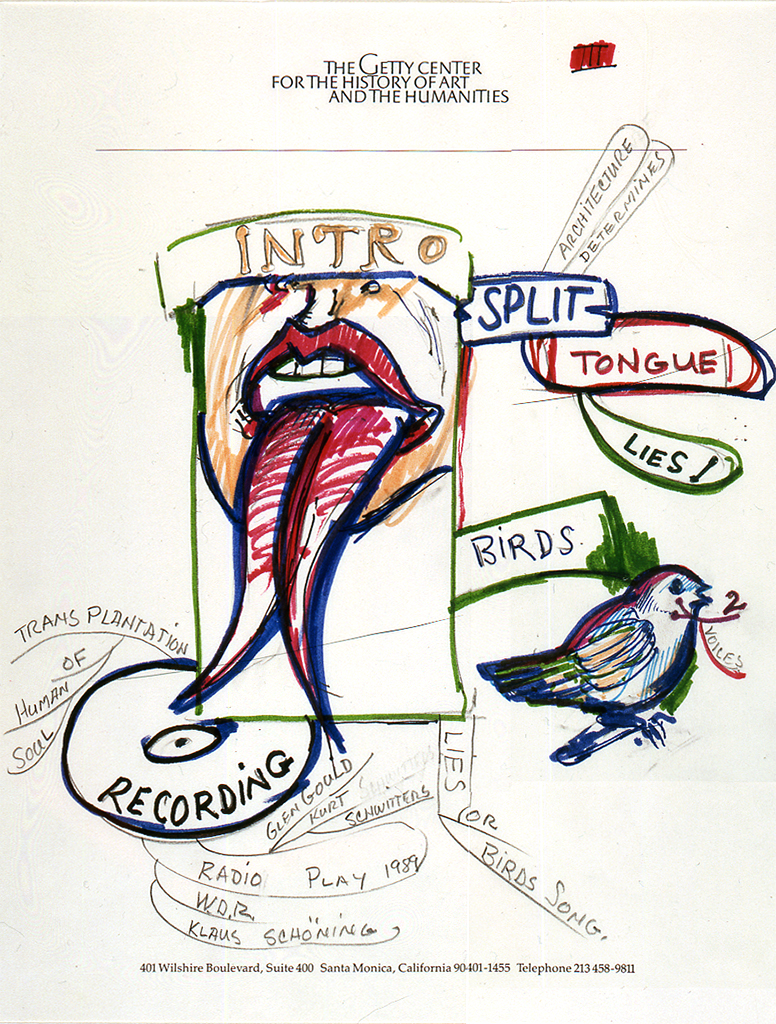 THE GETTY CENTER
FOR THE HISTORY OF ART
AND THE HUMANITIES
III
ARCHITECTURE
DETERMINES
INTRO
SPLIT
TONGUE!
LIES!
BIRDS.
2
VOICES
TRANSPLANTATION
OF
HUMAN
SOUL
RECORDING
GLEN GOULD
KURT SCHWITTERS
SCHWITTERS
LIES
OR
BIRDS SONG.
RADIO PLAY 1989
W.D.R.
KLAUS SCHÖNING
401 Wilshire Boulevard, Suite 400 Santa Monica, California 90401-1455 Telephone 213 458-9811